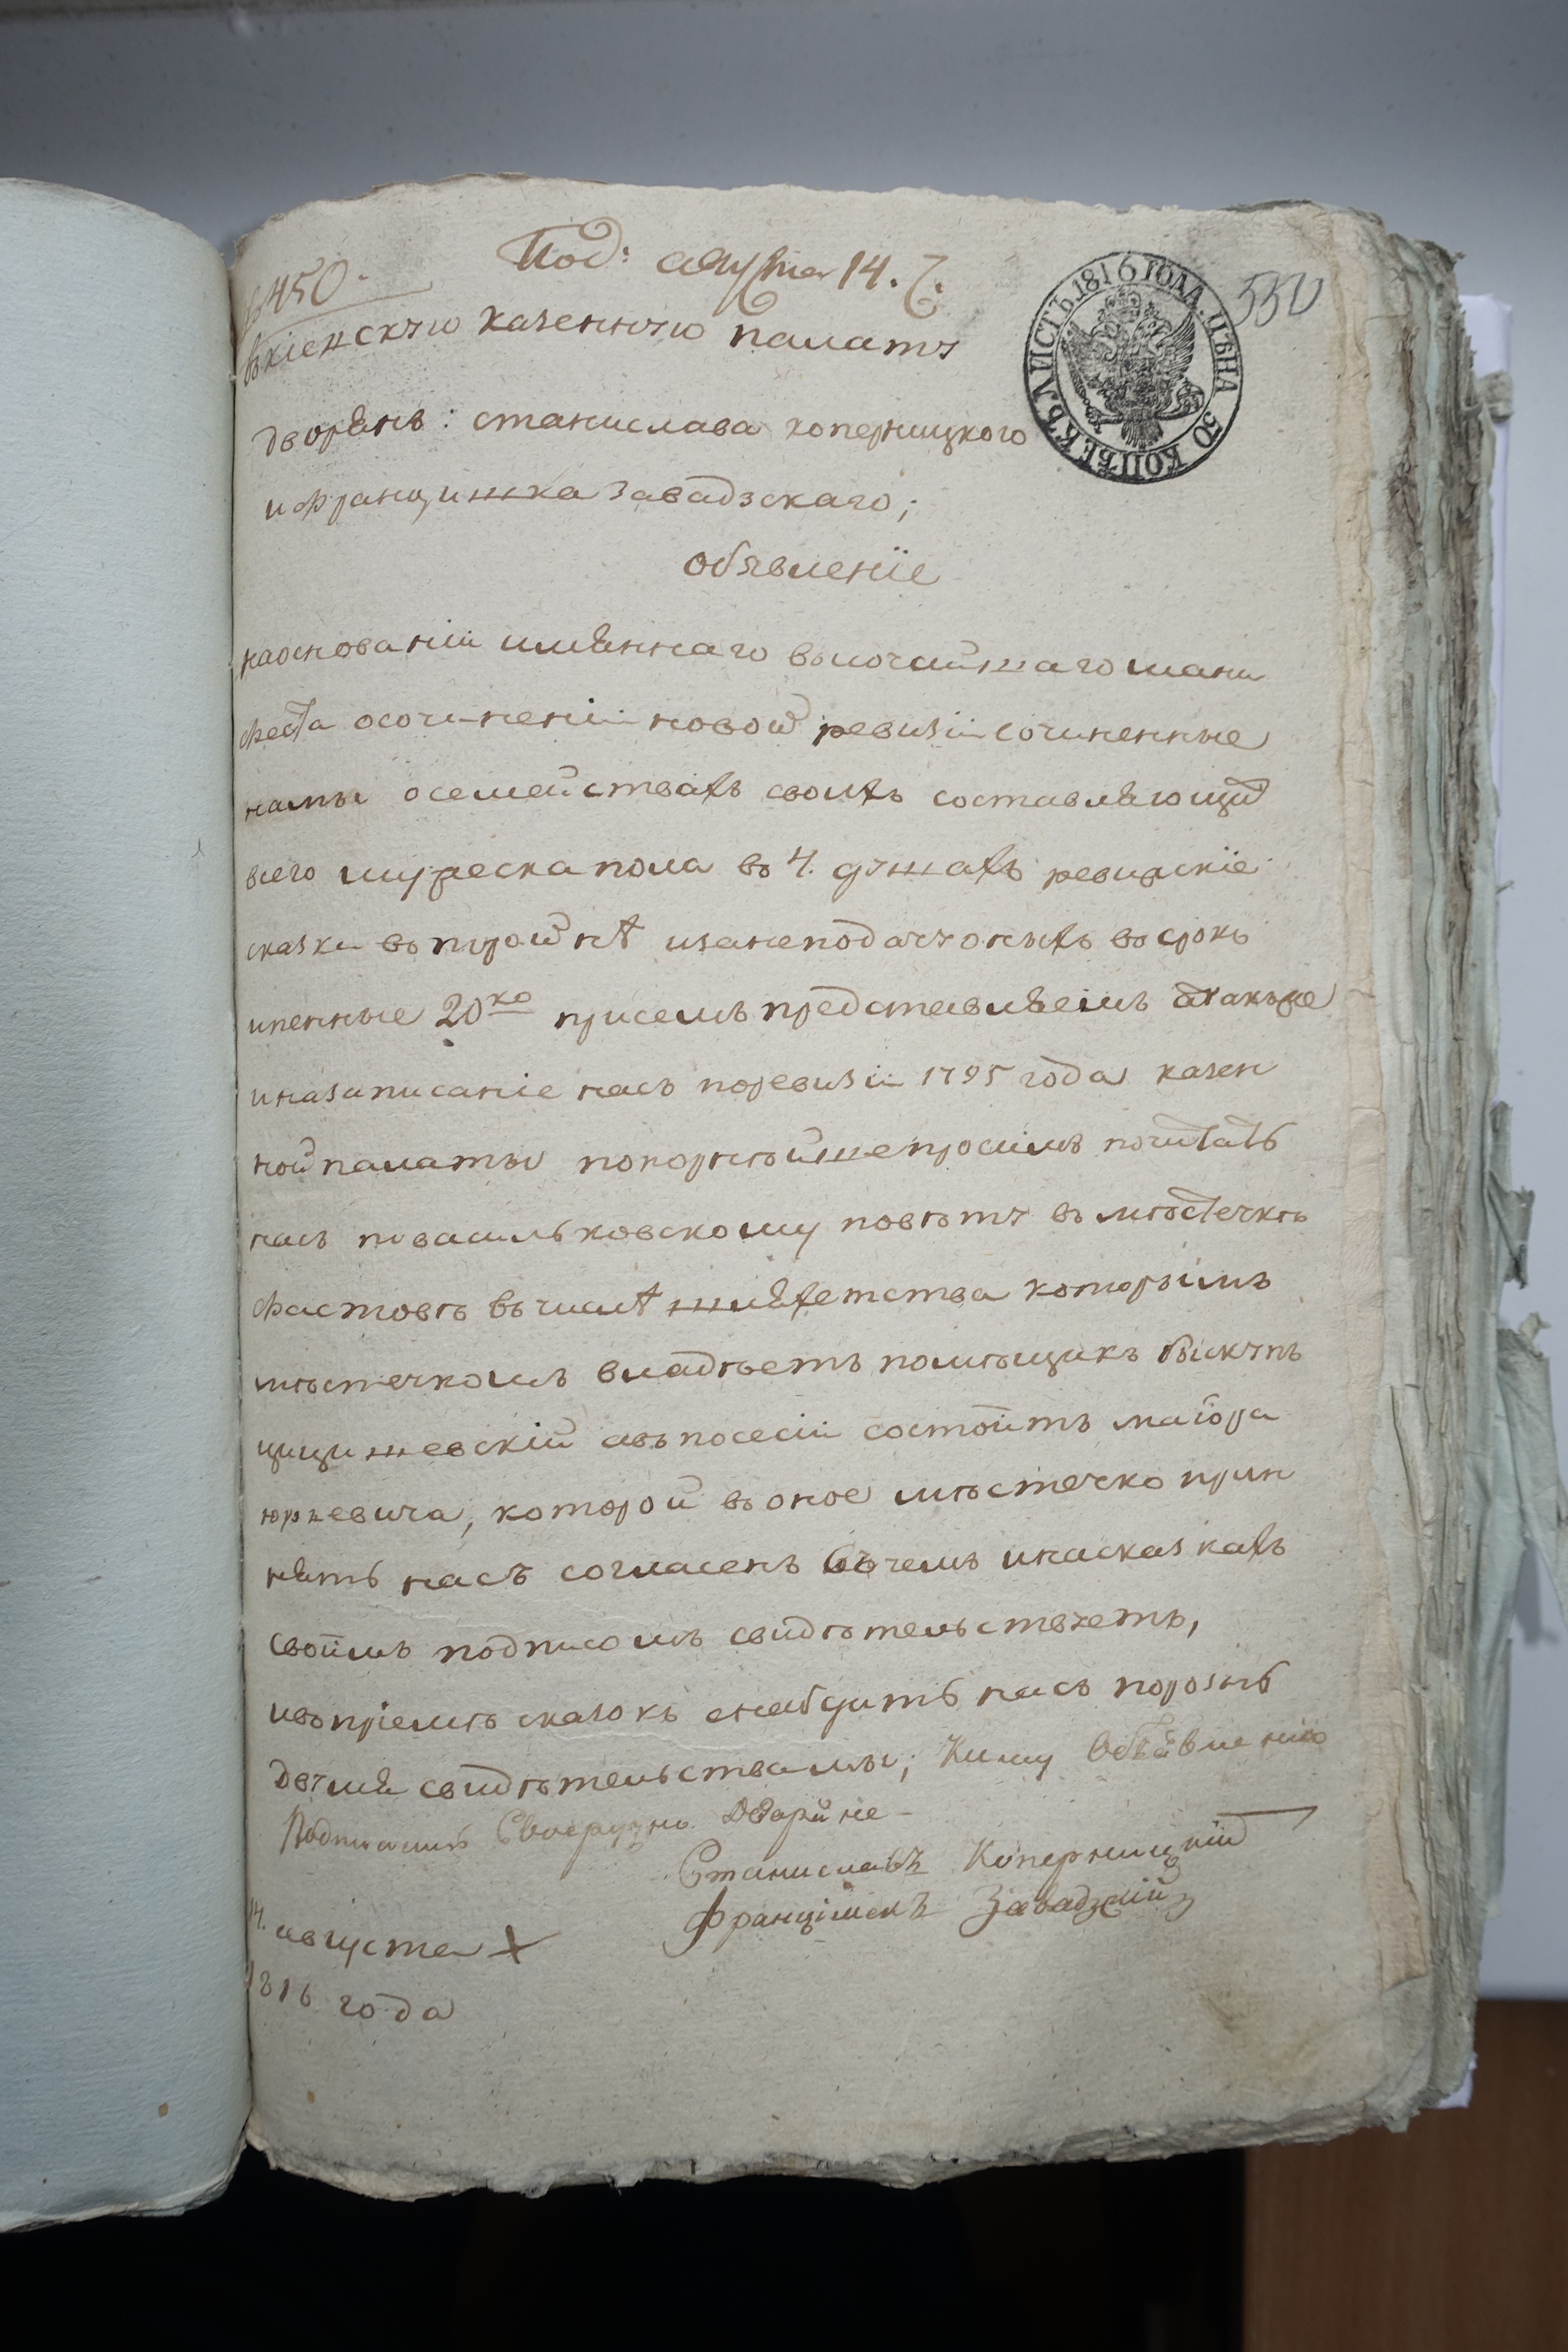 Под: августа 14. 7.
№ 450.
550
ЛИСТЪ. 1816 ГОДА. ЦѢНА 50 КОПѢЕКЪ
въ кіевскую казенную палату
дворянъ: станислава коперницкого
и францишка завадзскаго;
объявленіе
на основаніи имяннаго высочайшаго мани
феста о сочиненіи новой ревизіи сочиненные
намы о семействахъ своихъ составляющий
всего мужеска пола въ 4. душахъ ревизскіе
сказки въ тройнѣ и за неподачу оныхъ въ срокъ
и пенные 20ко присемъ представляемъ а также
и на записаніе насъ по ревизіи 1795 года казен
ной палаты покорнѣйше просимъ почитать
насъ по васильковскому повѣту въ мѣстечкѣ
фастовѣ въ числѣ шляхетства которымъ
мѣстечкомъ владѣетъ помѣщикъ бискупъ
цицишевскій а въ посесіи состоитъ маіора
юркевича, которой въ оное мѣстечко прин
нять насъ согласенъ въ чемъ и на сказкахъ
своимъ подписомъ свидѣтельствуетъ,
и въ пріемѣ сказокъ снабдить насъ порознь
двумя свидѣтельствамы; К сему Объявленію
Подписались Своеручно Дворяне
Станиславъ Коперницкій
Францішекъ Завадзкій
14. августа
1816 года